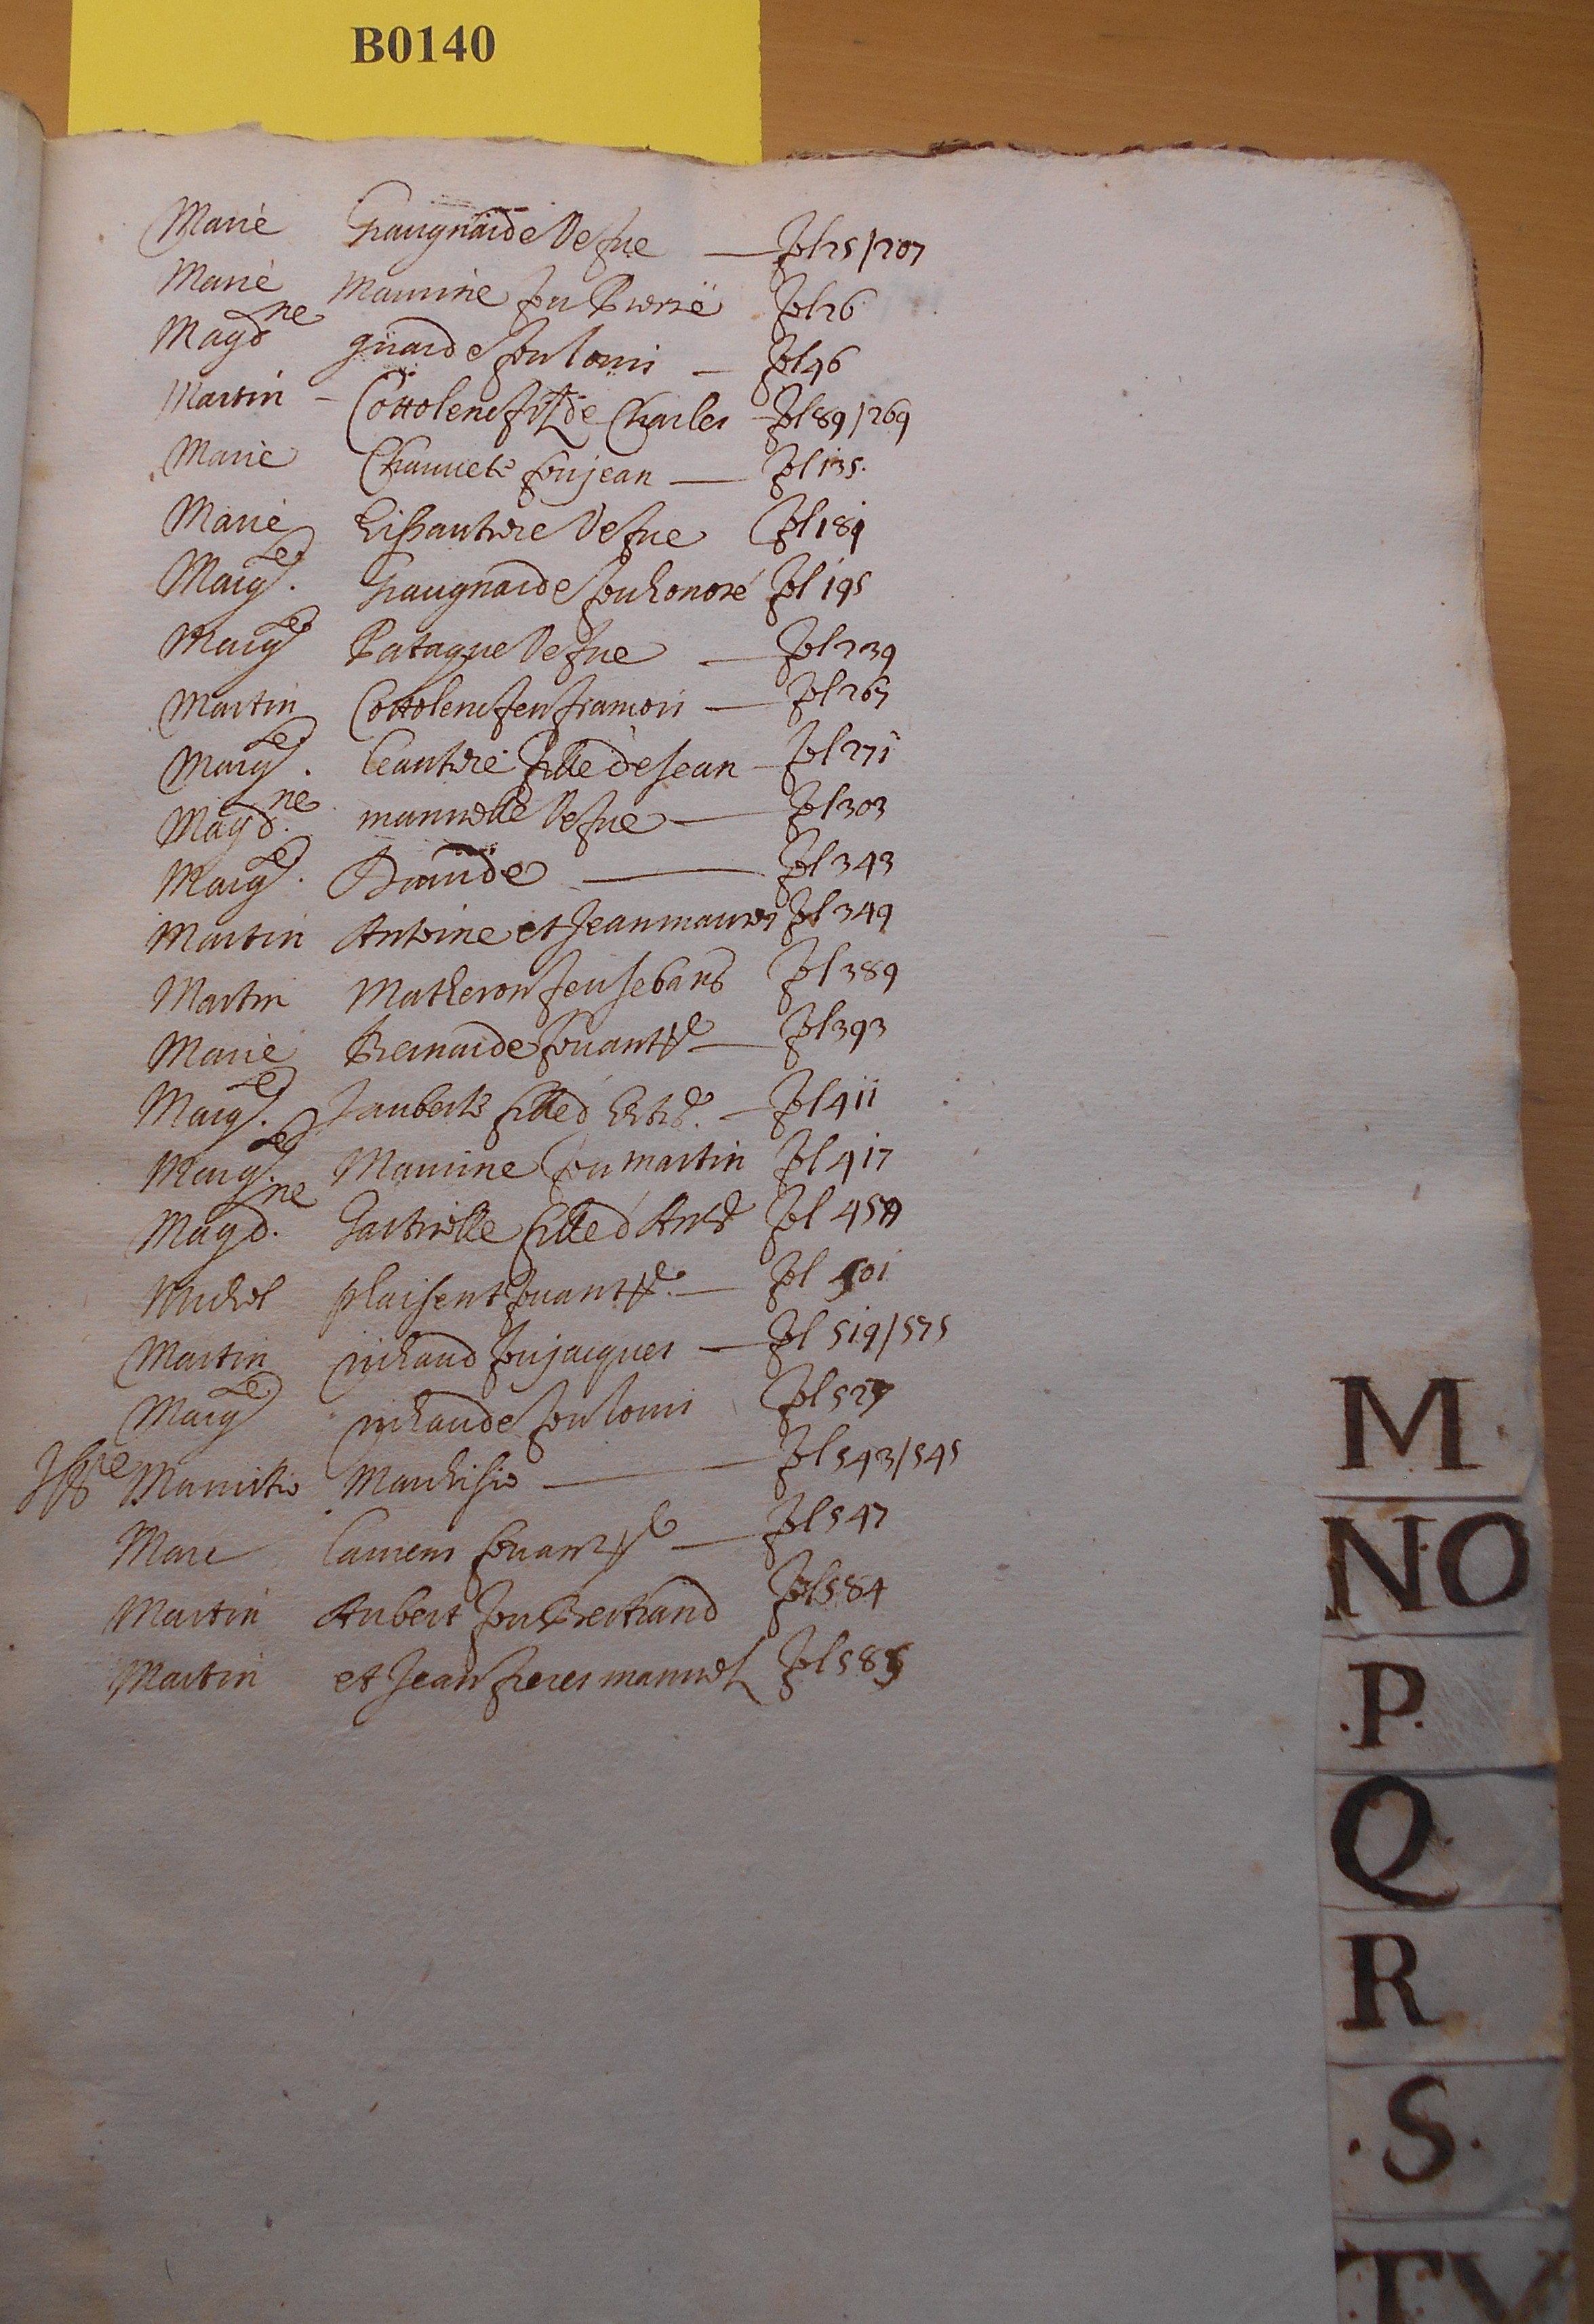 B0140
Marie Graugnarde Vefue — fol 25/207
Marie Maurine fou Pierre fol 26
Magd.ne guarde fou Louis — fol 46
Martin - Cottolenc filz de Charles - fol 89/269
Marie Chauuete fou jean — fol 135.
Marie Vefue fol 189
Marg.te Graugnarde fou honoré fol 195
Marg.te Patague Vefue — fol 239
Martin Cottolenc feu francois — fol 267
Marg.te Leautiere fille de Jean - fol 271
Magd.ne manuelle Vefue — fol 303
Marg.te — fol 343
Martin Antoine et Jean maurel fol 349
Martin Matheron feu fol 389
Marie Bernarde — fol 393
Marg.te Jauberte fille d' — fol 411
Marg.te Maurine fou martin fol 417
Magd.ne fille d' fol
Michel plaisent — fol 501
Martin richaud fou jacques — fol 519/575
Marg.te richaude fou Louis fol 527
Marchisio — fol 543/545
Marc Laurens — fol 547
Martin Aubert fou Bertrand fol 584
Martin et Jean freres manuel fol 585
M
NO
.P.
Q
R
.S.
TV